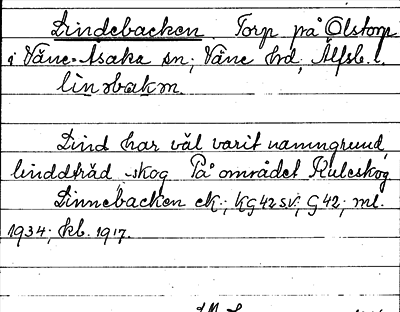 Lindebacken. Torp på Olstorp
i Väne-Åsaka sn; Väne hd, Älfsb. l.
linəbakm.
Lind har väl varit namngrund,
lindträd, -skog På området Kuleskog
Linnebacken ek.; KG42SV; G42; ml.
1934; kb. 1917.